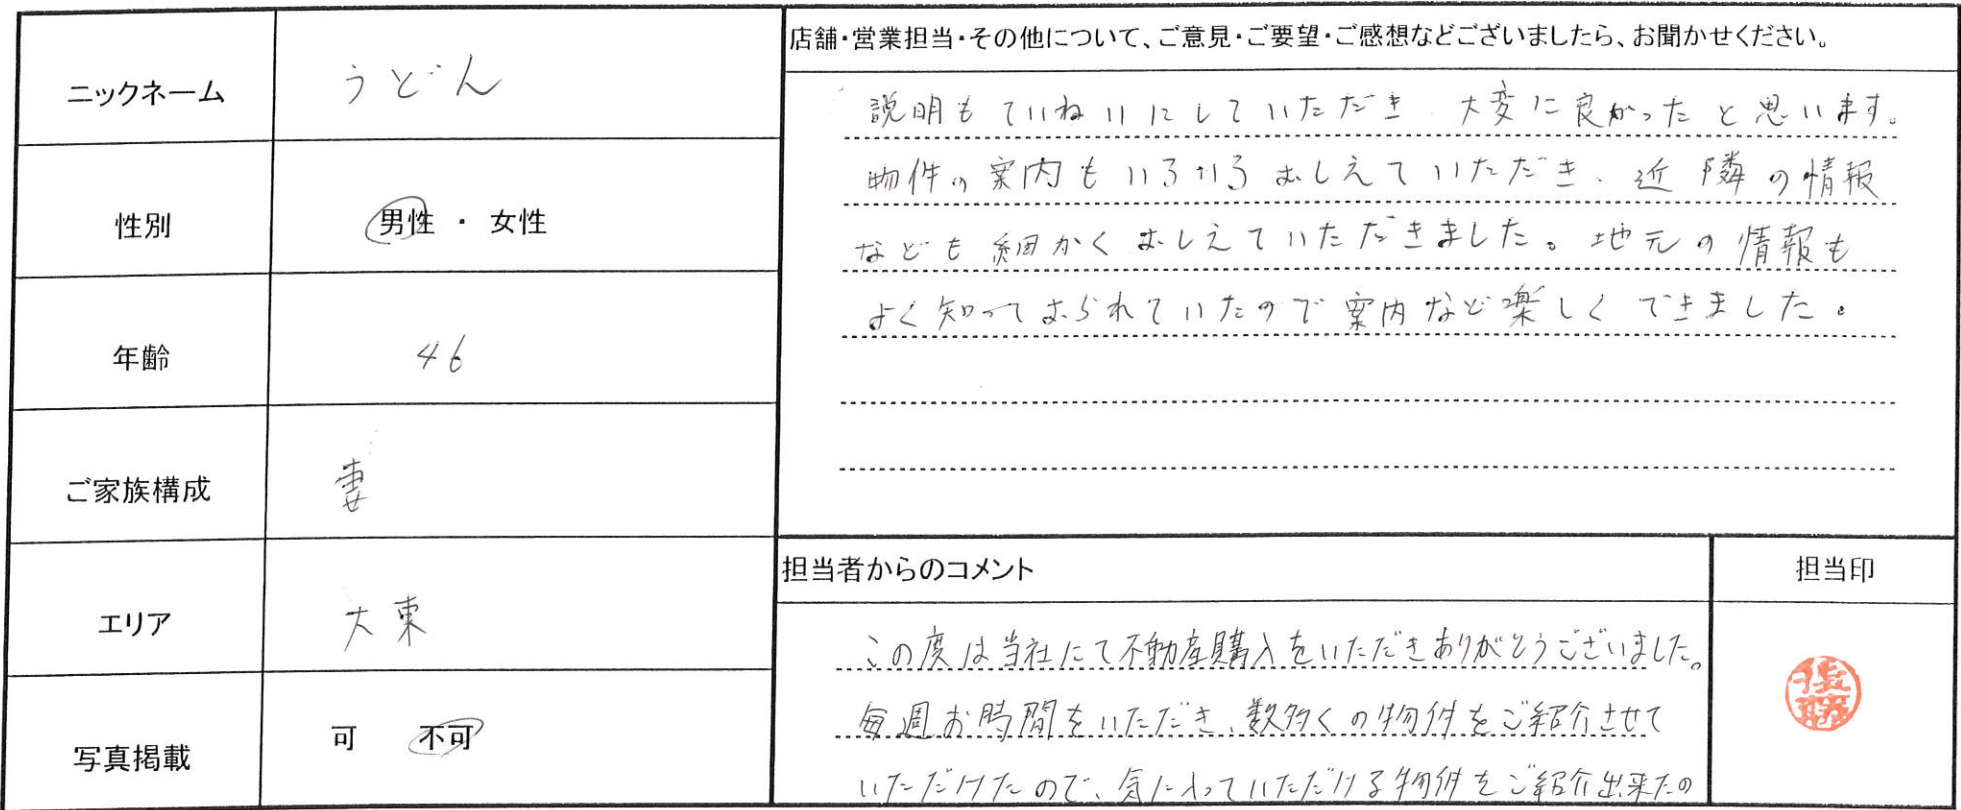 ニックネーム
うどん
性別
男性 ・ 女性
年齢
46
ご家族構成
妻
エリア
大東
写真掲載
可 不可
店舗・営業担当・その他について、ご意見・ご要望・ご感想などございましたら、お聞かせください。
説明もていねいにしていただき 大変に良かったと思います。
物件の案内もいろいろおしえていただき、近隣の情報
なども細かくおしえていただきました。地元の情報も
よく知っておられていたので案内など楽しくできました。
担当者からのコメント
この度は当社にて不動産購入をいただきありがとうございました。
毎週お時間をいただき、数多くの物件をご紹介させて
いただけたので、気に入っていただける物件をご紹介出来たの
担当印
後藤